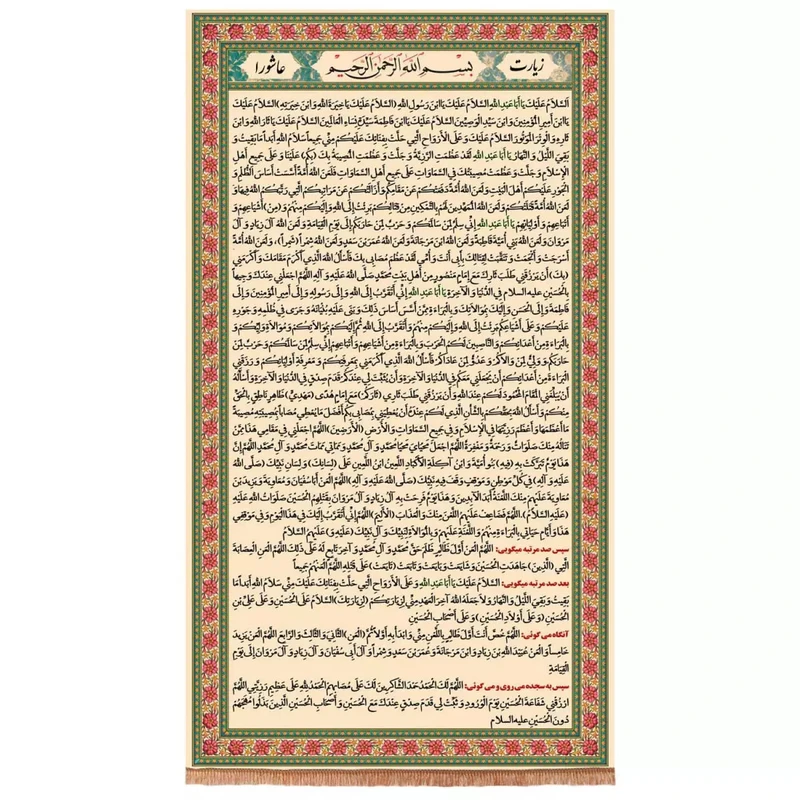 زیارت
بسم الله الرحمن الرحیم
عاشورا
اَلسَّلاٰمُ عَلَيْكَ يٰا أَبٰا عَبْدِ اللهِ اَلسَّلاٰمُ عَلَيْكَ يَابْنَ رَسُولِ اللهِ (اَلسَّلاٰمُ عَلَيْكَ يٰا خِيَرَةَ اللهِ وَابْنَ خِيَرَتِهِ) اَلسَّلاٰمُ عَلَيْكَ
يَابْنَ أَمِيرِ الْمُؤْمِنِينَ وَابْنَ سَيِّدِ الْوَصِيِّينَ اَلسَّلاٰمُ عَلَيْكَ يَابْنَ فٰاطِمَةَ سَيِّدَةِ نِسٰاءِ الْعٰالَمِينَ اَلسَّلاٰمُ عَلَيْكَ يٰا ثٰارَ اللهِ وَابْنَ
ثٰارِهِ وَالْوِتْرَ الْمَوْتُورَ اَلسَّلاٰمُ عَلَيْكَ وَعَلَى الْأَرْوٰاحِ الَّتِي حَلَّتْ بِفِنٰائِكَ عَلَيْكُمْ مِنِّي جَمِيعاً سَلاٰمُ اللهِ أَبَداً مٰا بَقِيتُ وَ
بَقِيَ اللَّيْلُ وَالنَّهٰارُ يٰا أَبٰا عَبْدِ اللهِ لَقَدْ عَظُمَتِ الرَّزِيَّةُ وَ جَلَّتْ وَ عَظُمَتِ الْمُصِيبَةُ بِكَ (بِكُمْ) عَلَيْنٰا وَ عَلَى جَمِيعِ أَهْلِ
الْإِسْلاٰمِ وَ جَلَّتْ وَ عَظُمَتْ مُصِيبَتُكَ فِي السَّمٰاوٰاتِ عَلَى جَمِيعِ أَهْلِ السَّمٰاوٰاتِ فَلَعَنَ اللهُ أُمَّةً أَسَّسَتْ أَسٰاسَ الظُّلْمِ وَ
الْجَوْرِ عَلَيْكُمْ أَهْلَ الْبَيْتِ وَ لَعَنَ اللهُ أُمَّةً دَفَعَتْكُمْ عَنْ مَقٰامِكُمْ وَ أَزٰالَتْكُمْ عَنْ مَرٰاتِبِكُمُ الَّتِي رَتَّبَكُمُ اللهُ فِيهٰا وَ
لَعَنَ اللهُ أُمَّةً قَتَلَتْكُمْ وَ لَعَنَ اللهُ الْمُمَهِّدِينَ لَهُمْ بِالتَّمْكِينِ مِنْ قِتٰالِكُمْ بَرِئْتُ إِلَى اللهِ وَ إِلَيْكُمْ مِنْهُمْ وَ (مِنْ) أَشْيٰاعِهِمْ وَ
أَتْبٰاعِهِمْ وَ أَوْلِيٰائِهِمْ يٰا أَبٰا عَبْدِ اللهِ إِنِّي سِلْمٌ لِمَنْ سٰالَمَكُمْ وَ حَرْبٌ لِمَنْ حٰارَبَكُمْ إِلَى يَوْمِ الْقِيٰامَةِ وَ لَعَنَ اللهُ آلَ زِيٰادٍ وَ آلَ
مَرْوٰانَ وَ لَعَنَ اللهُ بَنِي أُمَيَّةَ قٰاطِبَةً وَ لَعَنَ اللهُ ابْنَ مَرْجٰانَةَ وَ لَعَنَ اللهُ عُمَرَ بْنَ سَعْدٍ وَ لَعَنَ اللهُ شِمْراً (شَمِراً)، وَ لَعَنَ اللهُ أُمَّةً
أَسْرَجَتْ وَ أَلْجَمَتْ وَ تَنَقَّبَتْ لِقِتٰالِكَ بِأَبِي أَنْتَ وَ أُمِّي لَقَدْ عَظُمَ مُصٰابِي بِكَ فَأَسْأَلُ اللهَ الَّذِي أَكْرَمَ مَقٰامَكَ وَ أَكْرَمَنِي
(بِكَ) أَنْ يَرْزُقَنِي طَلَبَ ثٰارِكَ مَعَ إِمٰامٍ مَنْصُورٍ مِنْ أَهْلِ بَيْتِ مُحَمَّدٍ صَلَّى اللهُ عَلَيْهِ وَ آلِهِ اللّٰهُمَّ اجْعَلْنِي عِنْدَكَ وَجِيهاً
بِالْحُسَيْنِ علیه السلام فِي الدُّنْيٰا وَ الْآخِرَةِ يٰا أَبٰا عَبْدِ اللهِ إِنِّي أَتَقَرَّبُ إِلَى اللهِ وَ إِلَى رَسُولِهِ وَ إِلَى أَمِيرِ الْمُؤْمِنِينَ وَ إِلَى
فٰاطِمَةَ وَ إِلَى الْحَسَنِ وَ إِلَيْكَ بِمُوٰالاٰتِكَ وَ بِالْبَرٰاءَةِ مِمَّنْ أَسَّسَ أَسٰاسَ ذٰلِكَ وَ بَنَى عَلَيْهِ بُنْيٰانَهُ وَ جَرَى فِي ظُلْمِهِ وَ جَوْرِهِ
عَلَيْكُمْ وَ عَلَى أَشْيٰاعِكُمْ بَرِئْتُ إِلَى اللهِ وَ إِلَيْكُمْ مِنْهُمْ وَ أَتَقَرَّبُ إِلَى اللهِ ثُمَّ إِلَيْكُمْ بِمُوٰالاٰتِكُمْ وَ مُوٰالاٰةِ وَلِيِّكُمْ وَ
بِالْبَرٰاءَةِ مِنْ أَعْدٰائِكُمْ وَ النّٰاصِبِينَ لَكُمُ الْحَرْبَ وَ بِالْبَرٰاءَةِ مِنْ أَشْيٰاعِهِمْ وَ أَتْبٰاعِهِمْ إِنِّي سِلْمٌ لِمَنْ سٰالَمَكُمْ وَ حَرْبٌ لِمَنْ
حٰارَبَكُمْ وَ وَلِيٌّ لِمَنْ وٰالاٰكُمْ وَ عَدُوٌّ لِمَنْ عٰادٰاكُمْ فَأَسْأَلُ اللهَ الَّذِي أَكْرَمَنِي بِمَعْرِفَتِكُمْ وَ مَعْرِفَةِ أَوْلِيٰائِكُمْ وَ رَزَقَنِي
الْبَرٰاءَةَ مِنْ أَعْدٰائِكُمْ أَنْ يَجْعَلَنِي مَعَكُمْ فِي الدُّنْيٰا وَ الْآخِرَةِ وَ أَنْ يُثَبِّتَ لِي عِنْدَكُمْ قَدَمَ صِدْقٍ فِي الدُّنْيٰا وَ الْآخِرَةِ وَ أَسْأَلُهُ
أَنْ يُبَلِّغَنِي الْمَقٰامَ الْمَحْمُودَ لَكُمْ عِنْدَ اللهِ وَ أَنْ يَرْزُقَنِي طَلَبَ ثٰارِي (ثٰارَكُمْ) مَعَ إِمٰامِ هُدًى (مَهْدِيٍّ) ظٰاهِرٍ نٰاطِقٍ بِالْحَقِّ
مِنْكُمْ وَ أَسْأَلُ اللهَ بِحَقِّكُمْ وَ بِالشَّأْنِ الَّذِي لَكُمْ عِنْدَهُ أَنْ يُعْطِيَنِي بِمُصٰابِي بِكُمْ أَفْضَلَ مٰا يُعْطِي مُصٰاباً بِمُصِيبَتِهِ مُصِيبَةً
مٰا أَعْظَمَهٰا وَ أَعْظَمَ رَزِيَّتَهٰا فِي الْإِسْلاٰمِ وَ فِي جَمِيعِ السَّمٰاوٰاتِ وَ الْأَرْضِ (الْأَرَضِينَ) اللّٰهُمَّ اجْعَلْنِي فِي مَقٰامِي هٰذٰا مِمَّنْ
تَنٰالُهُ مِنْكَ صَلَوٰاتٌ وَ رَحْمَةٌ وَ مَغْفِرَةٌ اللّٰهُمَّ اجْعَلْ مَحْيٰايَ مَحْيٰا مُحَمَّدٍ وَ آلِ مُحَمَّدٍ وَ مَمٰاتِي مَمٰاتَ مُحَمَّدٍ وَ آلِ مُحَمَّدٍ اللّٰهُمَّ إِنَّ
هٰذٰا يَوْمٌ تَبَرَّكَتْ بِهِ (فِيهِ) بَنُو أُمَيَّةَ وَ ابْنُ آكِلَةِ الْأَكْبٰادِ اللَّعِينُ ابْنُ اللَّعِينِ عَلَى (لِسٰانِكَ) وَ لِسٰانِ نَبِيِّكَ (صَلَّى اللهُ
عَلَيْهِ وَ آلِهِ) فِي كُلِّ مَوْطِنٍ وَ مَوْقِفٍ وَقَفَ فِيهِ نَبِيُّكَ (صَلَّى اللهُ عَلَيْهِ وَ آلِهِ) اللّٰهُمَّ الْعَنْ أَبٰا سُفْيٰانَ وَ مُعٰاوِيَةَ وَ يَزِيدَ بْنَ
مُعٰاوِيَةَ عَلَيْهِمْ مِنْكَ اللَّعْنَةُ أَبَدَ الْآبِدِينَ وَ هٰذٰا يَوْمٌ فَرِحَتْ بِهِ آلُ زِيٰادٍ وَ آلُ مَرْوٰانَ بِقَتْلِهِمُ الْحُسَيْنَ صَلَوٰاتُ اللهِ عَلَيْهِ
(علیه السلام)، اللّٰهُمَّ فَضٰاعِفْ عَلَيْهِمُ اللَّعْنَ مِنْكَ وَ الْعَذٰابَ (الْأَلِيمَ) اللّٰهُمَّ إِنِّي أَتَقَرَّبُ إِلَيْكَ فِي هٰذٰا الْيَوْمِ وَ فِي مَوْقِفِي
هٰذٰا وَ أَيّٰامِ حَيٰاتِي بِالْبَرٰاءَةِ مِنْهُمْ وَ اللَّعْنَةِ عَلَيْهِمْ وَ بِالْمُوٰالاٰةِ لِنَبِيِّكَ وَ آلِ نَبِيِّكَ (عَلَيْهِ وَ) عَلَيْهِمُ السَّلاٰمُ
سپس صد مرتبه میگویی: اللّٰهُمَّ الْعَنْ أَوَّلَ ظٰالِمٍ ظَلَمَ حَقَّ مُحَمَّدٍ وَ آلِ مُحَمَّدٍ وَ آخِرَ تٰابِعٍ لَهُ عَلَى ذٰلِكَ اللّٰهُمَّ الْعَنِ الْعِصٰابَةَ
الَّتِي (الَّذِينَ) جٰاهَدَتِ الْحُسَيْنَ وَ شٰايَعَتْ وَ بٰايَعَتْ وَ تٰابَعَتْ (تٰايَعَتْ) عَلَى قَتْلِهِ اللّٰهُمَّ الْعَنْهُمْ جَمِيعاً
بعد صد مرتبه میگویی: السَّلاٰمُ عَلَيْكَ يٰا أَبٰا عَبْدِ اللهِ وَ عَلَى الْأَرْوٰاحِ الَّتِي حَلَّتْ بِفِنٰائِكَ عَلَيْكَ مِنِّي سَلاٰمُ اللهِ أَبَداً مٰا
بَقِيتُ وَ بَقِيَ اللَّيْلُ وَ النَّهٰارُ وَ لاٰ جَعَلَهُ اللهُ آخِرَ الْعَهْدِ مِنِّي لِزِيٰارَتِكُمْ (لِزِيٰارَتِكَ) السَّلاٰمُ عَلَى الْحُسَيْنِ وَ عَلَى عَلِيِّ بْنِ
الْحُسَيْنِ (وَ عَلَى أَوْلاٰدِ الْحُسَيْنِ) وَ عَلَى أَصْحٰابِ الْحُسَيْنِ
آنگاه می گوئی: اللّٰهُمَّ خُصَّ أَنْتَ أَوَّلَ ظٰالِمٍ بِاللَّعْنِ مِنِّي وَ ابْدَأْ بِهِ أَوَّلاً ثُمَّ (الْعَنِ) الثّٰانِيَ وَ الثّٰالِثَ وَ الرّٰابِعَ اللّٰهُمَّ الْعَنْ يَزِيدَ
خٰامِساً وَ الْعَنْ عُبَيْدَ اللهِ بْنَ زِيٰادٍ وَ ابْنَ مَرْجٰانَةَ وَ عُمَرَ بْنَ سَعْدٍ وَ شِمْراً وَ آلَ أَبِي سُفْيٰانَ وَ آلَ زِيٰادٍ وَ آلَ مَرْوٰانَ إِلَى يَوْمِ
الْقِيٰامَةِ
سپس به سجده می روی و می گوئی: اللّٰهُمَّ لَكَ الْحَمْدُ حَمْدَ الشّٰاكِرِينَ لَكَ عَلَى مُصٰابِهِمُ الْحَمْدُ لِلّٰهِ عَلَى عَظِيمِ رَزِيَّتِي اللّٰهُمَّ
ارْزُقْنِي شَفٰاعَةَ الْحُسَيْنِ يَوْمَ الْوُرُودِ وَ ثَبِّتْ لِي قَدَمَ صِدْقٍ عِنْدَكَ مَعَ الْحُسَيْنِ وَ أَصْحٰابِ الْحُسَيْنِ الَّذِينَ بَذَلُوا مُهَجَهُمْ
دُونَ الْحُسَيْنِ علیه السلام